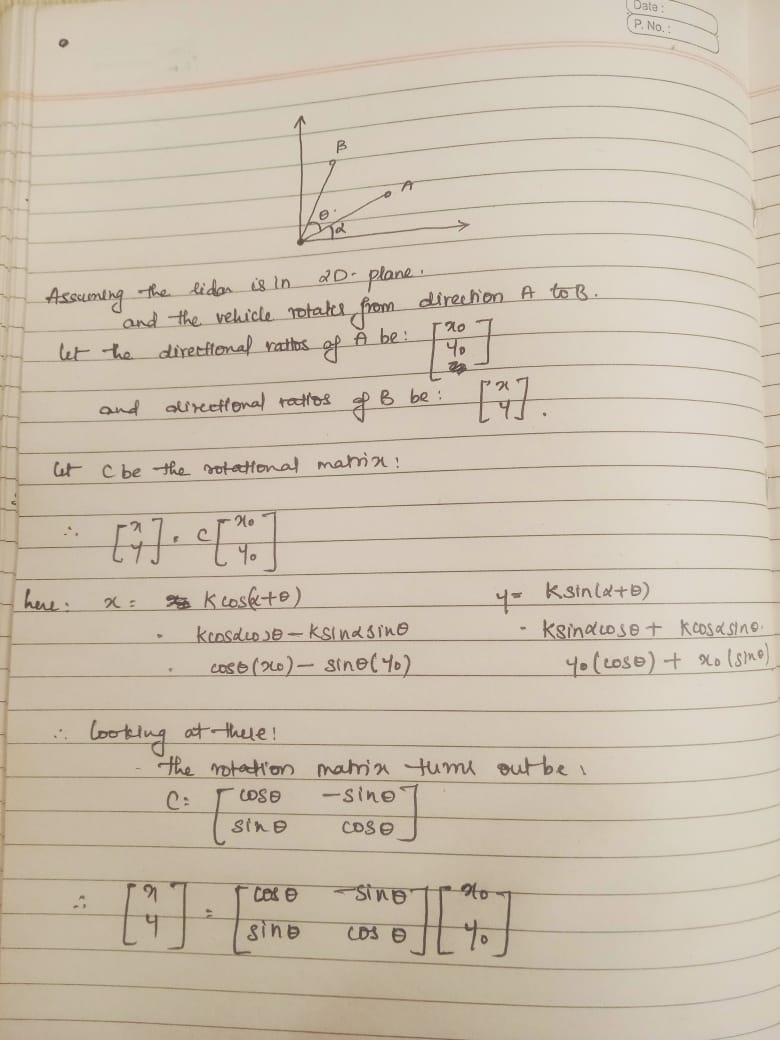 Date :
P. No. :
B
A
θ
α
Assuming the lidar is in 2D- plane.
and the vehicle rotates from direction A to B.
let the directional ratios of A be: [x₀ y₀]
and directional ratios of B be: [x y].
let C be the rotational matrix:
∴ [x y] = C [x₀ y₀]
here: x = K cos(α+θ) y = K sin(α+θ)
= kcosαcosθ – ksinαsinθ = ksinαcosθ + kcosαsinθ.
= cosθ(x₀) – sinθ(y₀) y₀(cosθ) + x₀(sinθ)
∴ looking at these:
- the rotation matrix turns out be :
C = [cosθ –sinθ
sinθ cosθ]
∴ [x y] = [cosθ –sinθ sinθ cosθ] [x₀ y₀]